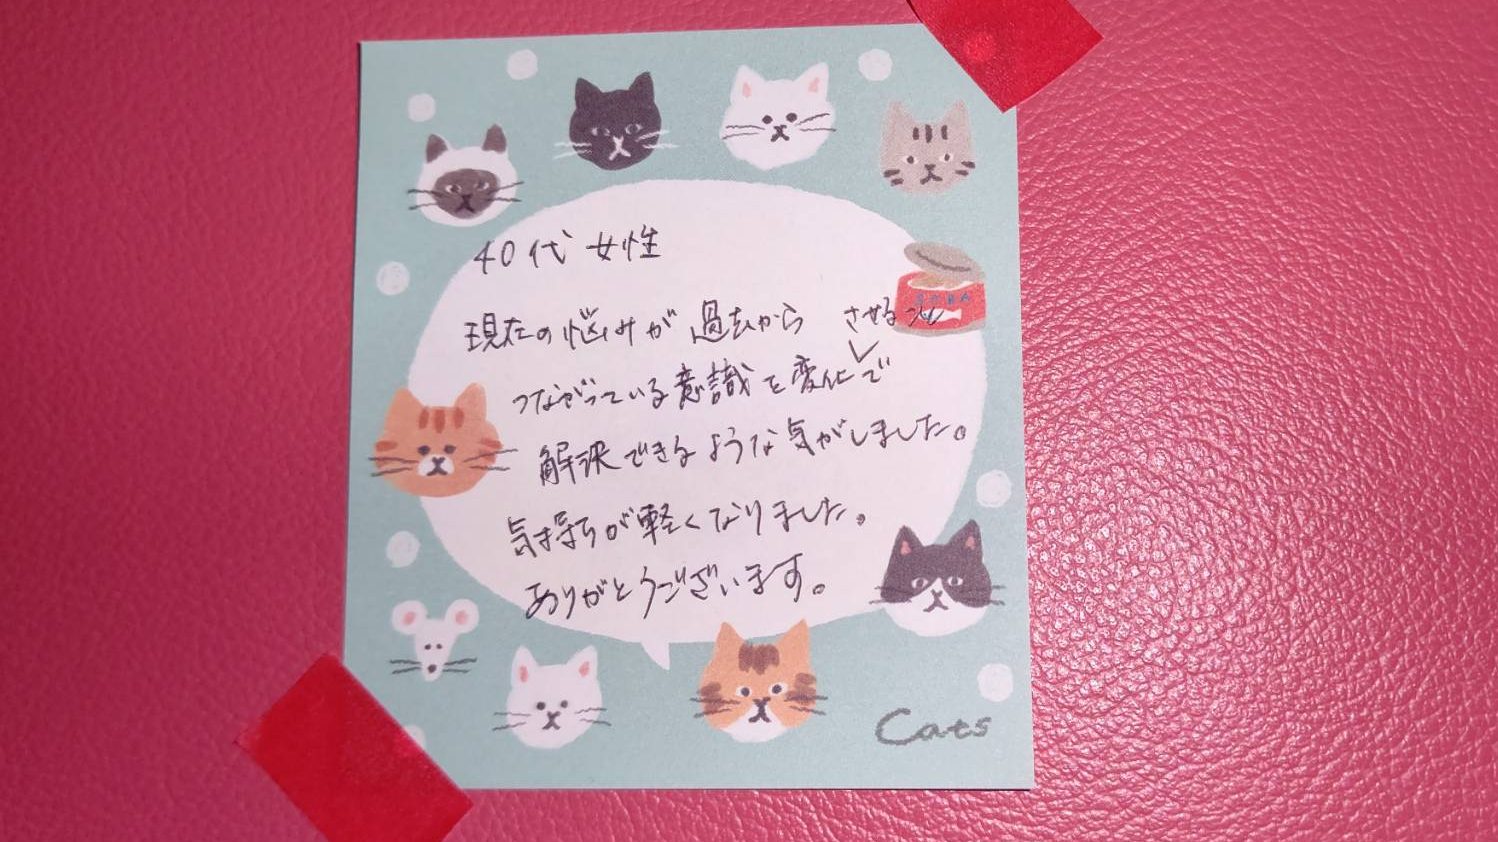 40代 女性
現在の悩みが 過去から
つながっている意識を変化させることで
解決できるような気がしました。
気持ちが軽くなりました。
ありがとうございます。
Cats